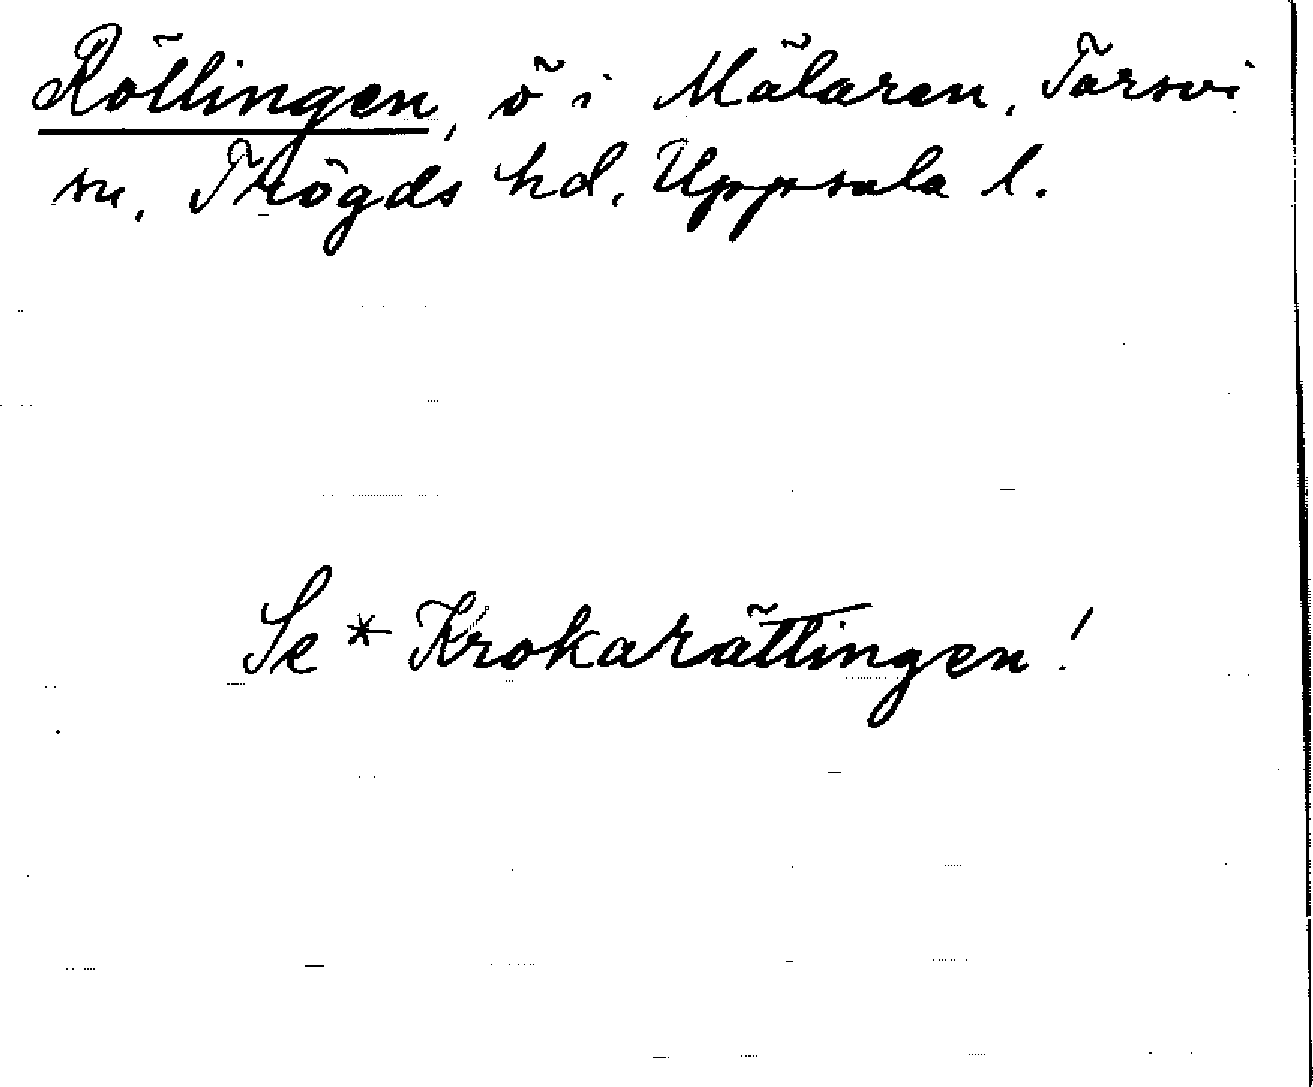 Röllingen, ö i Mälaren, Torsvi
sn, Trögds hd, Uppsala l.
Se *Krokarättingen!